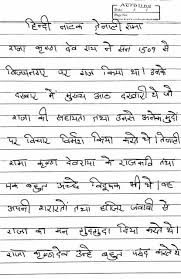 हिन्दी नाटक तेनाली रामा
राजा कृष्ण देव राय ने सन 1509 से
विजयनगर पर राज किया था। उनके
दरबार में मुख्य आठ दरबारी थे जो
राजा की सहायता तथा उनसे अनेक मुद्दों
पर विचार विमर्श किया करते थे। तेनाली
रामा कृष्ण देवराय के राजकवि तथा
एक बहुत अच्छे विदूषक भी थे। वह
अपनी शरारतों तथा हाजिर जवाबी से
राजा का मन गुदगुदा दिया करते थे।
राजा कृष्णदेव उन्हें बहुत पसंद करते थे